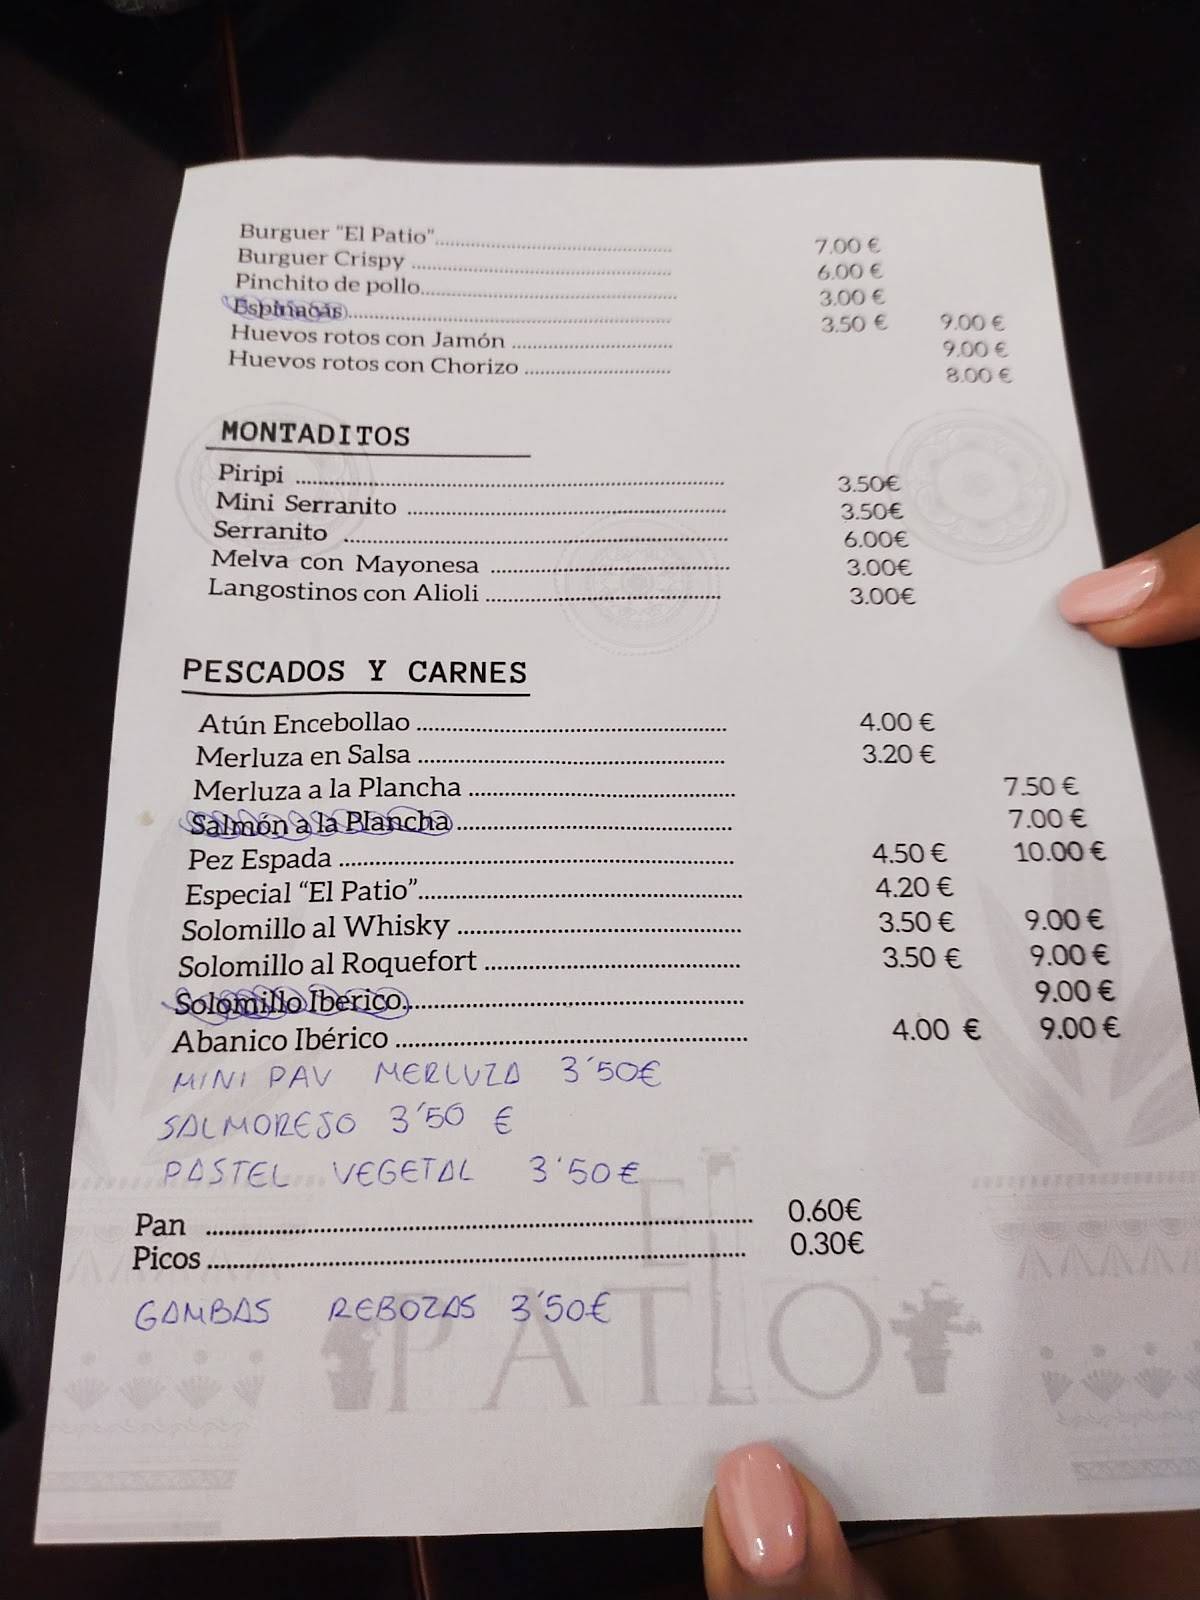 Burguer "El Patio" 7.00 €
Burguer Crispy 6.00 €
Pinchito de pollo 3.00 €
Espinacas 3.50 € 9.00 €
Huevos rotos con Jamón 9.00 €
Huevos rotos con Chorizo 8.00 €
MONTADITOS
Piripi 3.50€
Mini Serranito 3.50€
Serranito 6.00€
Melva con Mayonesa 3.00€
Langostinos con Alioli 3.00€
PESCADOS Y CARNES
Atún Encebollao 4.00 €
Merluza en Salsa 3.20 €
Merluza a la Plancha 7.50 €
Salmón a la Plancha 7.00 €
Pez Espada 4.50 € 10.00 €
Especial “El Patio” 4.20 €
Solomillo al Whisky 3.50 € 9.00 €
Solomillo al Roquefort 3.50 € 9.00 €
Solomillo Iberico 9.00 €
Abanico Ibérico 4.00 € 9.00 €
MINI PAV MERLUZA 3'50€
SALMOREJO 3'50 €
PASTEL VEGETAL 3'50€
Pan 0.60€
Picos 0.30€
GAMBAS REBOZAS 3'50€
El
PATIO